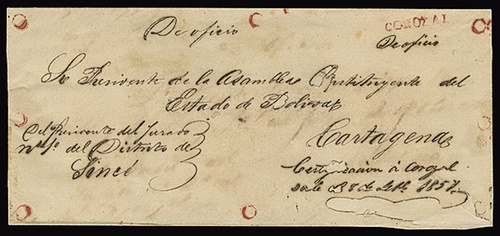 De oficio
COROZAL
De oficio
Sr Presidente de la Asamblea Constituyente del
Estado de Bolívar
Cartagena
Del Presidente del Jurado
del Distrito de
Sincé
Certificación á Corozal
1857